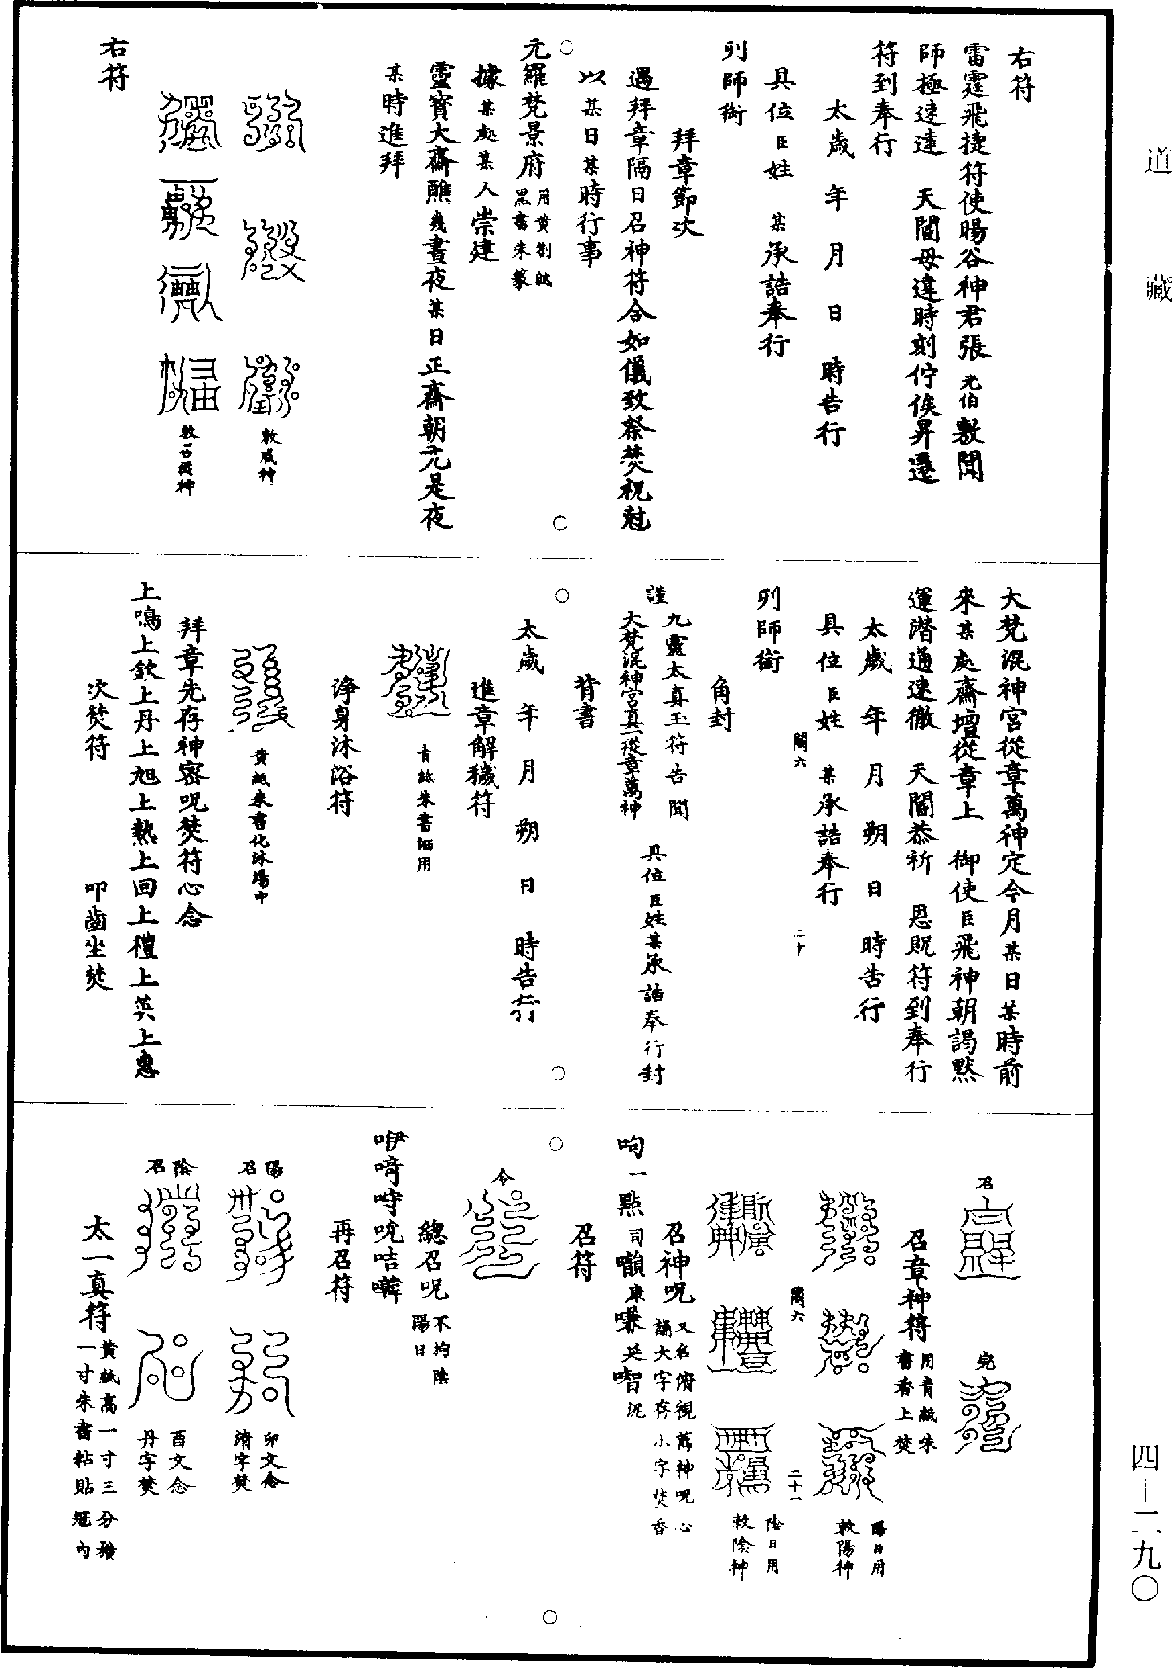 道藏
右符
雷霆飛捷符使暘谷神君張元伯敷聞
師極速達　天閽毋違時刻佇俟昇遷
符到奉行
太歲　年　月　日　時告行
具位臣姓　某承誥奉行
列師銜
拜章節次
遇拜章隔日召神符合如儀致祭焚祝尅
以某日某時行事
元羅梵景府用黃劄紙黑書朱篆
據某處某人崇建
靈寶大齋醮幾晝夜某日正齋朝元是夜
某時進拜
敕威神
右符
大梵混神宮從章萬神定今月某日某時前
來某處齋壇從章上　御使臣飛神朝謁默
運潛通速徹　天閽恭祈　恩貺符到奉行
太歲　年　月　朔　日　時告行
具位臣姓　某承誥奉行
闕六　二十
列師銜
角封
謹　九靈太真玉符告聞
大梵混神宮真一從章萬神
具位臣姓某承誥奉行封
背書
太歲　年　月　朔　日　時告行
進章解穢符
青紙朱書佩用
淨身沐浴符
黃紙朱書化沐湯中
拜章先存神密呪焚符心念
上鳴上欽上丹上旭上熱上回上禮上英上惠
次焚符　叩齒坐焚
召
宛
召章神符用青紙朱書香上焚
陽日用
敕陽神
闕六　二十一
陰日用
敕陰神
召神呪又名俯視萬神呪心誦大字存小字焚香
呴一點司嚬康嗛是㗌泥
召符
令
總召呪不拘陰陽日
咿㗁哷吮咭囀
再召符
陽召
卯文念清字焚
陰召
酉文念丹字焚
太一真符黃紙高一寸三分橫一寸朱書粘貼冠內
四—二九〇